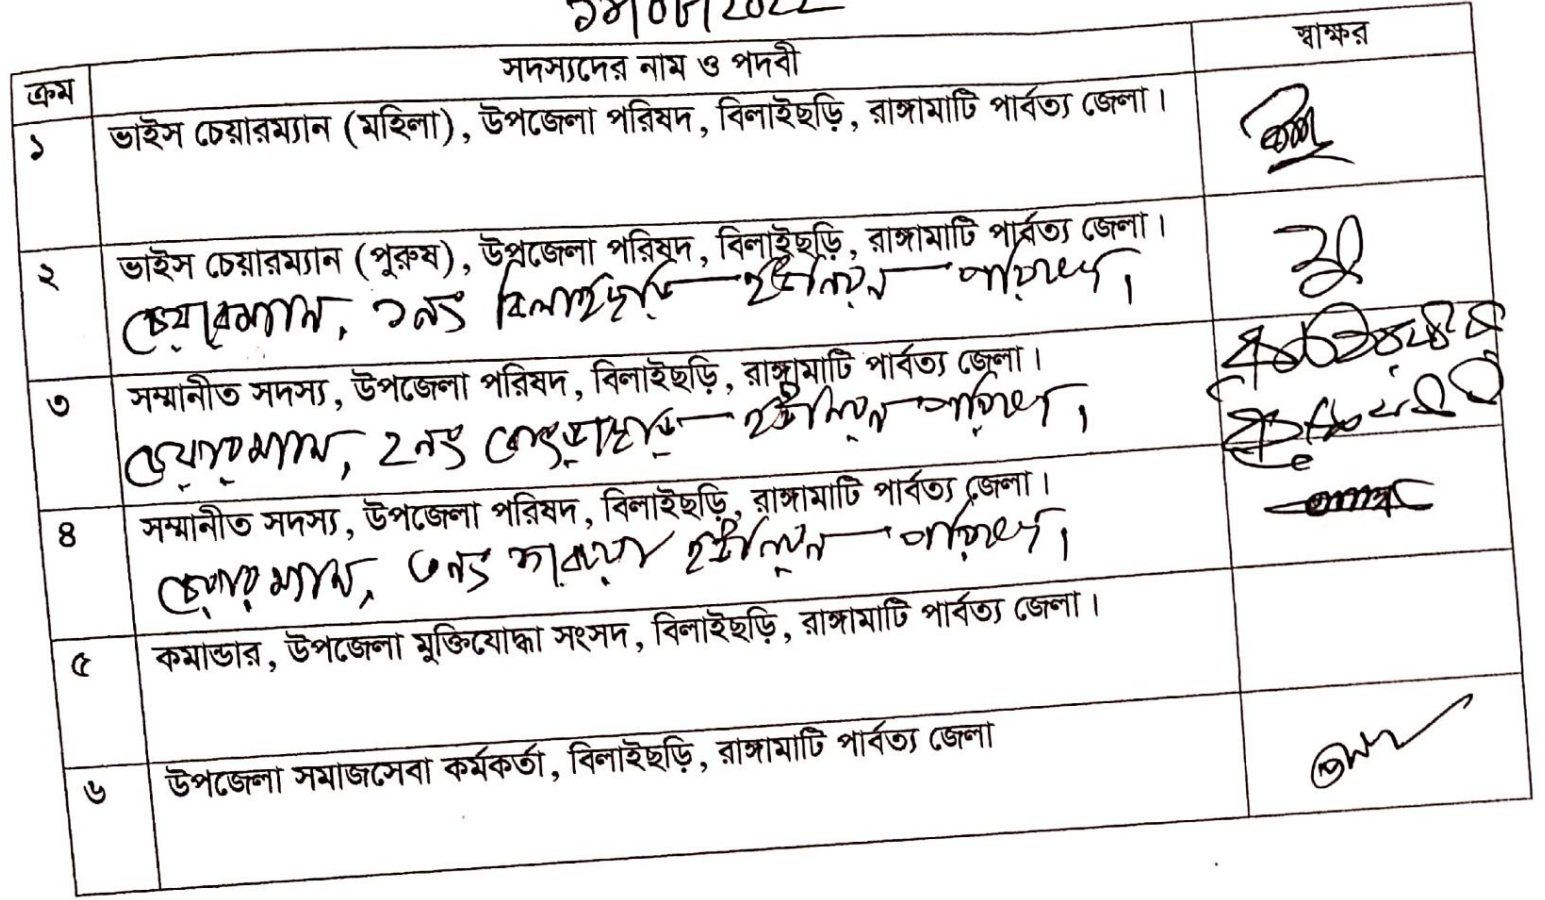 ক্রম
সদস্যদের নাম ও পদবী
স্বাক্ষর
১
ভাইস চেয়ারম্যান (মহিলা), উপজেলা পরিষদ, বিলাইছড়ি, রাঙ্গামাটি পার্বত্য জেলা।
২
ভাইস চেয়ারম্যান (পুরুষ), উপজেলা পরিষদ, বিলাইছড়ি, রাঙ্গামাটি পার্বত্য জেলা।
চেয়ারম্যান, ১নং বিলাইছড়ি ইউনিয়ন পরিষদ।
৩
সম্মানীত সদস্য, উপজেলা পরিষদ, বিলাইছড়ি, রাঙ্গামাটি পার্বত্য জেলা।
চেয়ারম্যান, ২নং কেংড়াছড়ি ইউনিয়ন পরিষদ।
৪
সম্মানীত সদস্য, উপজেলা পরিষদ, বিলাইছড়ি, রাঙ্গামাটি পার্বত্য জেলা।
চেয়ারম্যান, ৩নং ফারুয়া ইউনিয়ন পরিষদ।
৫
কমান্ডার, উপজেলা মুক্তিযোদ্ধা সংসদ, বিলাইছড়ি, রাঙ্গামাটি পার্বত্য জেলা।
৬
উপজেলা সমাজসেবা কর্মকর্তা, বিলাইছড়ি, রাঙ্গামাটি পার্বত্য জেলা